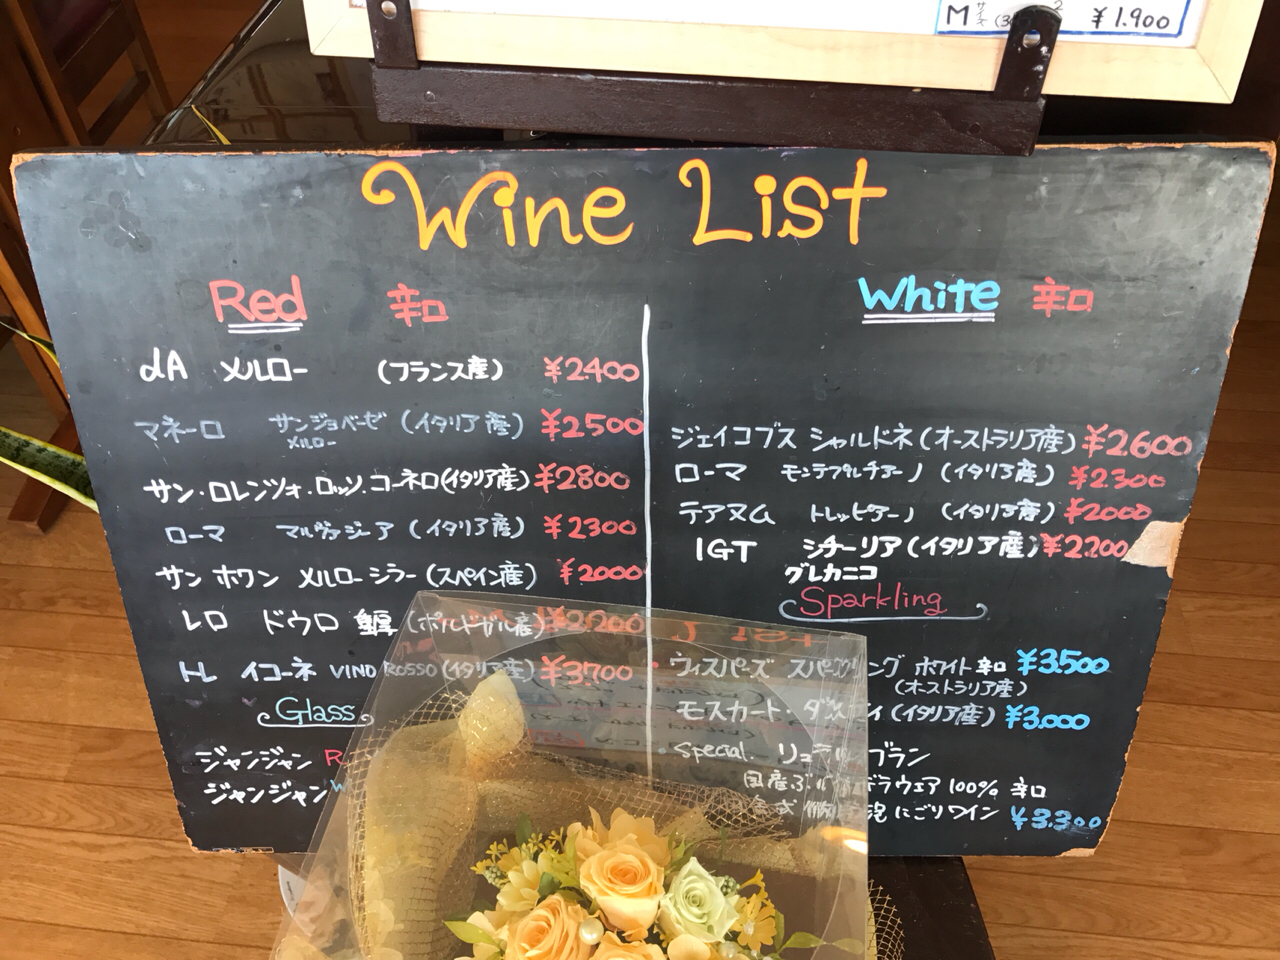 M サイズ ¥1.900
Wine List
Red 辛口
dA メルロー (フランス産) ¥2400
マネーロ サンジョベーゼ (イタリア産) ¥2500
メルロー
サン・ロレンツォ・ロッソ.コーネロ(イタリア産) ¥2800
ローマ マルヴァジーア (イタリア産) ¥2300
サン ホワン メルロー シラー (スペイン産) ¥2000
レロ ドウロ (ポルトガル産) ¥2200
トレ イコーネ VINO ROSSO (イタリア産) ¥3700
Glass
ジャンジャン R
ジャンジャン W
White 辛口
ジェイコブス シャルドネ (オーストラリア産) ¥2600
ローマ モンテプルチアーノ (イタリア産) ¥2300
テアヌム トレッビアーノ (イタリア産) ¥2000
IGT シチーリア (イタリア産) ¥2200
グレカニコ
Sparkling
ウィスパーズ スパークリング ホワイト 辛口 ¥3500
(オーストラリア産)
モスカート・ダスティ (イタリア産) ¥3.000
Special. リュナ ブラン
国産ぶ デラウェア 100% 辛口
泡 にごりワイン ¥3.300